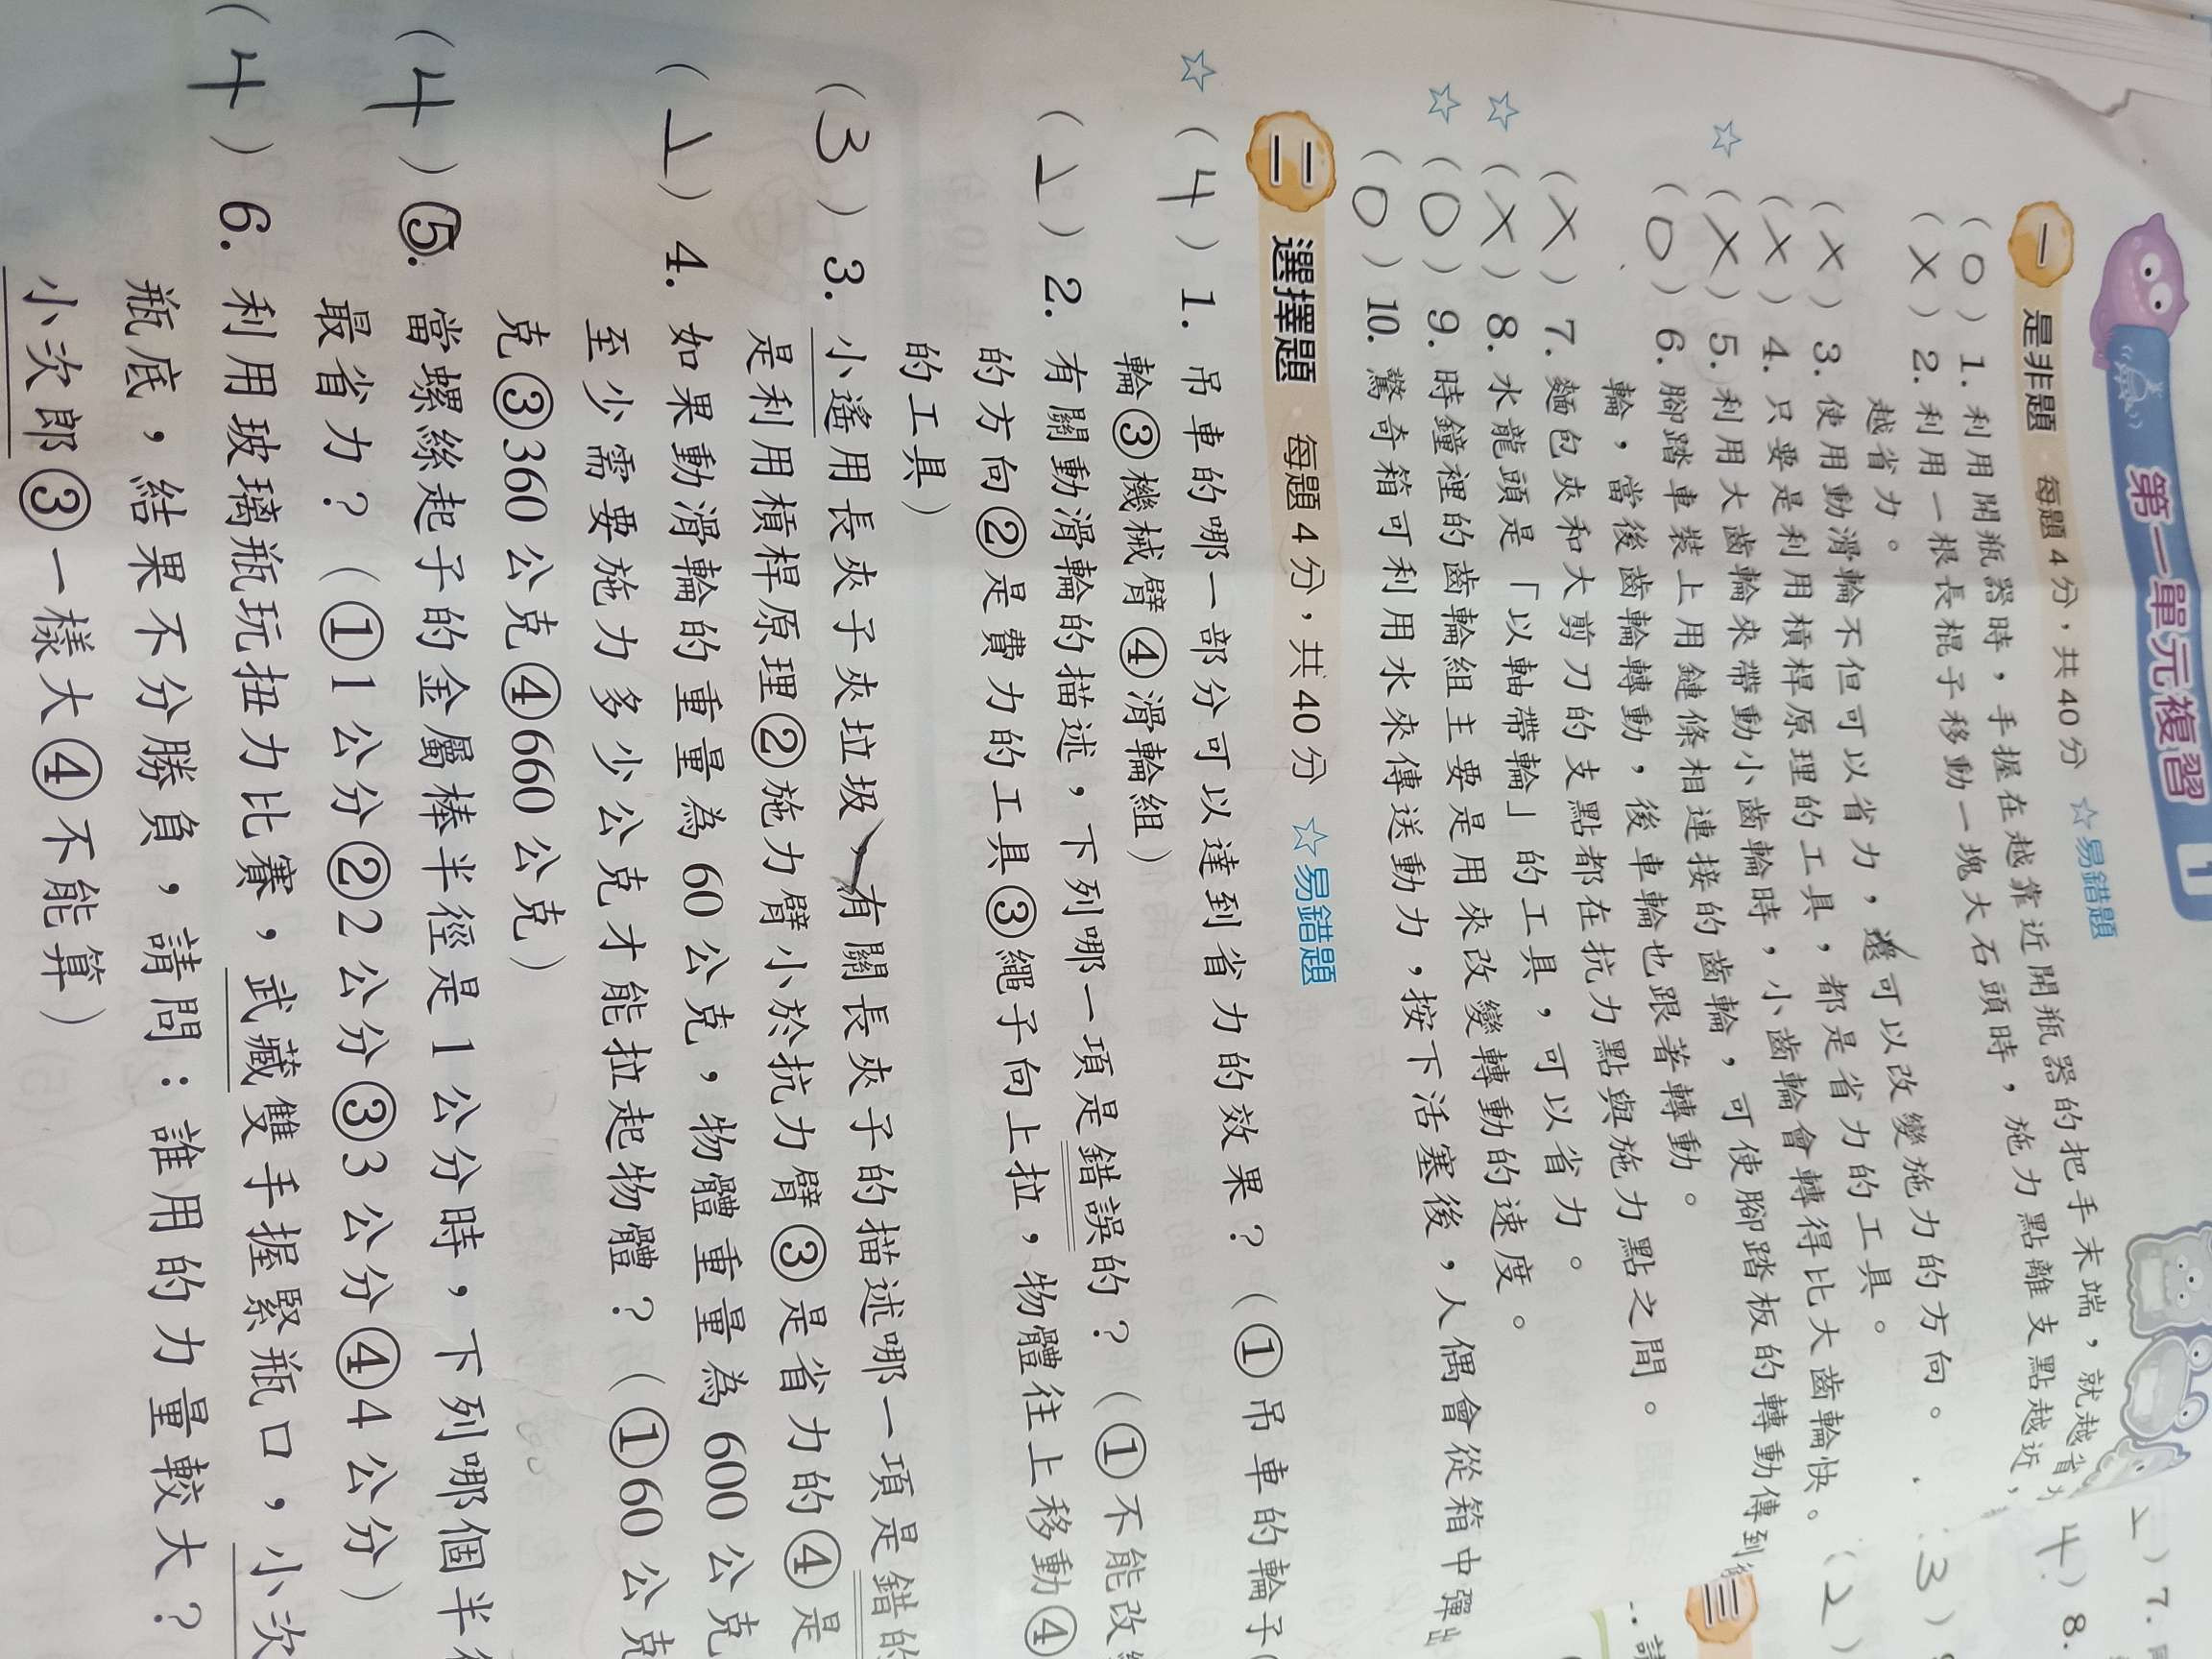 第一單元複習 1
一 是非題 每題4分，共40分 ☆易錯題
(O) 1. 利用開瓶器時，手握在越靠近開瓶器的把手末端，就越省力
(X) 2. 利用一根長棍子移動一塊大石頭時，施力點離支點越近，
越省力。
(X) 3. 使用動滑輪不但可以省力，還可以改變施力的方向。
(X) 4. 只要是利用槓桿原理的工具，都是省力的工具。
☆ (X) 5. 利用大齒輪來帶動小齒輪時，小齒輪會轉得比大齒輪快。
(O) 6. 腳踏車裝上用鏈條相連接的齒輪，可使腳踏板的轉動傳到後
輪，當後齒輪轉動，後車輪也跟著轉動。
(X) 7. 麵包夾和大剪刀的支點都在抗力點與施力點之間。
☆ (X) 8. 水龍頭是「以軸帶輪」的工具，可以省力。
☆ (O) 9. 時鐘裡的齒輪組主要是用來改變轉動的速度。
(O) 10. 驚奇箱可利用水來傳送動力，按下活塞後，人偶會從箱中彈出
二 選擇題 每題4分，共40分 ☆易錯題
☆ (4) 1. 吊車的哪一部分可以達到省力的效果？(①吊車的輪子
輪③機械臂④滑輪組)
(2) 2. 有關動滑輪的描述，下列哪一項是錯誤的？(①不能改
的方向②是費力的工具③繩子向上拉，物體往上移動④
的工具)
(3) 3. 小遙用長夾子夾垃圾，有關長夾子的描述哪一項是錯的
是利用槓桿原理②施力臂小於抗力臂③是省力的④是
(2) 4. 如果動滑輪的重量為60公克，物體重量為600公克
至少需要施力多少公克才能拉起物體？(①60公克
克③360公克④660公克)
(4) 5. 當螺絲起子的金屬棒半徑是1公分時，下列哪個半徑
最省力？(①1公分②2公分③3公分④4公分)
(4) 6. 利用玻璃瓶玩扭力比賽，武藏雙手握緊瓶口，小次
瓶底，結果不分勝負，請問：誰用的力量較大？
小次郎③一樣大④不能算)
2) 7.
4) 8.
3)
(2)
三